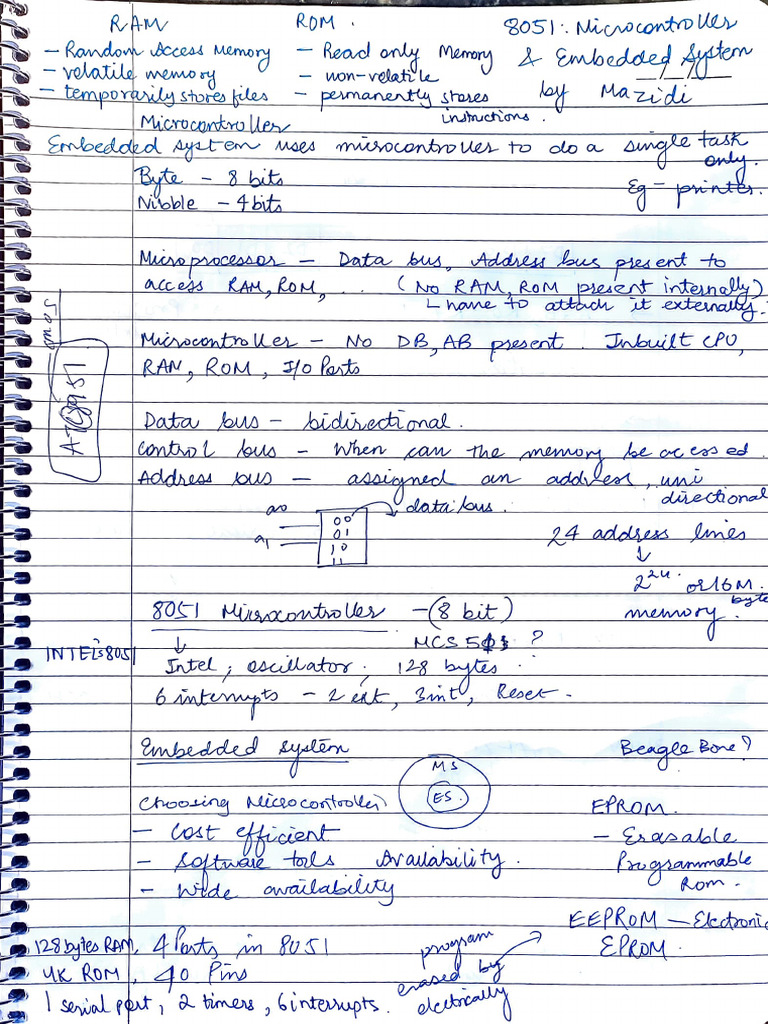 RAM
ROM.
8051: Microcontroller
& Embedded System
by Mazidi
- Random Access Memory
- volatile memory
- temporarily stores files
- Read only Memory
- non-volatile
- permanently stores
instructions.
Microcontroller
Embedded system uses microcontroller to do a single task
only.
Byte - 8 bits
Nibble - 4 bits
Eg - printer.
Microprocessor - Data bus, Address bus present to
access RAM, ROM, ... (No RAM, ROM present internally)
have to attach it externally.
Microcontroller - No DB, AB present. Inbuilt CPU,
RAM, ROM, I/O Ports
Data bus - bidirectional.
Control bus - When can the memory be accessed.
Address bus - assigned an address, uni
directional
a0
a1
00
01
10
11
data bus.
24 address lines
2^24 or 16M
byte
memory.
8051 Microcontroller - (8 bit)
MCS 51 ?
INTEL's 8051
Intel, oscillator, 128 bytes
6 interrupts - 2 ext, 3 int, Reset.
Embedded system
MS
ES
Beagle Bone?
Choosing Microcontroller
- Cost efficient
- Software tools Availability.
- Wide availability
EPROM.
- Erasable
Programmable
Rom.
EEPROM - Electronic
EPROM.
program
erased by
electrically
128 bytes RAM, 4 Ports in 8051
4K ROM, 40 Pins
1 serial port, 2 timers, 6 interrupts.